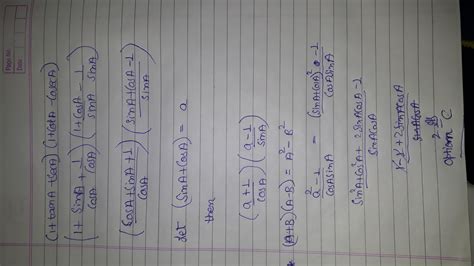 Page No.
Date
(1+tanA+secA) (1+cotA-cosecA)
(1+ sinA/cosA + 1/cosA) (1+ cosA/sinA - 1/sinA)
((cosA+sinA+1)/cosA) ((sinA+cosA-1)/sinA)
let (sinA+cosA) = a
then
((a+1)/cosA) ((a-1)/sinA)
* (A+B)(A-B) = A²-B²
(a²-1)/ = ((sinA+cosA)²-1)/(cosAsinA)
(sin²A+cos²A+2sinAcosA-1)/(sinAcosA)
(1-1+2sinAcosA)/(sinAcosA)
2
Option C